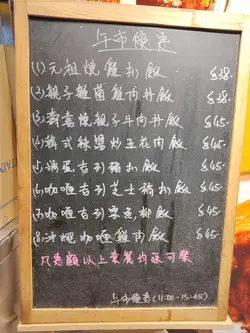 午市優惠
(1) 元祖燒雞扒飯 $38-
(2) 親子雞菌雞肉丼飯 $38-
(3) 壽喜燒親子牛肉丼飯 $45-
(4) 韓式辣醬炒五花肉飯 $45-
(5) 滑蛋吉列豬扒飯 $45-
(6) 咖喱吉列芝士豬扒飯 $45-
(7) 咖喱吉列雜魚柳飯 $45-
(8) 沖繩咖喱雞肉飯 $45-
凡惠顧以上套餐均送可樂
午市優惠 (11:00-15:45)